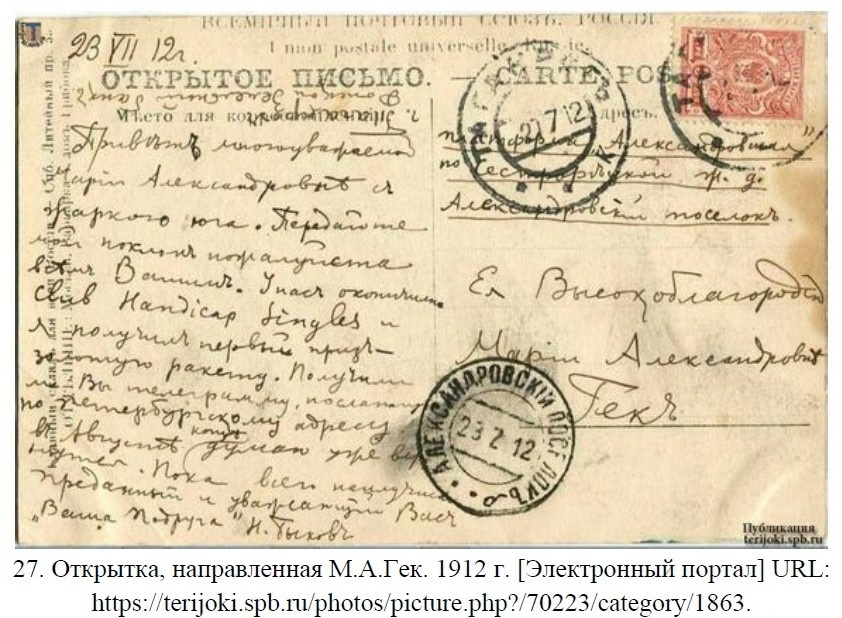 ВСЕМІРНЫЙ ПОЧТОВЫЙ СОЮЗЪ. РОССІЯ.
Union postale universelle. Russie.
23 VII 12 г.
ОТКРЫТОЕ ПИСЬМО. — CARTE POSTALE.
Мѣсто для
адресъ.
Привѣтъ многоуважаемой
Маріи Александровнѣ съ
жаркого юга. Передайте
мой поклонъ пожалуйста
всѣмъ Вашимъ. У насъ окончились
Club Handicap Singles и
я получилъ первый призъ –
золотую ракету. Получили
ли Вы телеграмму, посланную
по Петербургскому адресу
въ Августѣ думаю уже вер
нуться. Пока всего наилучшаго
преданный и уважающій Васъ
„Ваша Подруга" Н. Быковъ
платформа „Александровская"
по Сестрорѣцкой ж. д.
Александровскій поселокъ.
Ея Высокоблагородію
Маріи Александровнѣ
Гекъ
ТАГАНРОГЪ
20 7 12
АЛЕКСАНДРОВСКІЙ ПОСЕЛОКЪ
23 7 12
Публикация
terijoki.spb.ru
27. Открытка, направленная М.А.Гек. 1912 г. [Электронный портал] URL:
https://terijoki.spb.ru/photos/picture.php?/70223/category/1863.